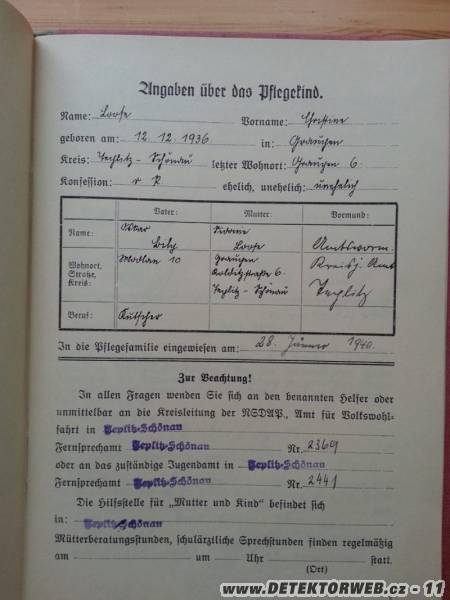 Angaben über das Pflegekind.
Name: Loose Vorname: Christine
geboren am: 12. 12. 1936 in: Graupen
Kreis: Teplitz-Schönau letzter Wohnort: Graupen 6
Konfession: r. k. ehelich, unehelich: unehelich
Vater: Mutter: Vormund:
Name: Oskar Sidonie
Loose Amtsvorm.
Wohnort, Straße, Kreis: Modlan 10 Graupen Kreisj. Amt
6. Teplitz
Teplitz-Schönau
Beruf: Kutscher
In die Pflegefamilie eingewiesen am: 28. Jänner 1940.
Zur Beachtung!
In allen Fragen wenden Sie sich an den benannten Helfer oder
unmittelbar an die Kreisleitung der NSDAP., Amt für Volkswohl-
fahrt in Teplitz-Schönau
Fernsprechamt Teplitz-Schönau Nr. 2369
oder an das zuständige Jugendamt in Teplitz-Schönau
Fernsprechamt Teplitz-Schönau Nr. 2441
Die Hilfsstelle für „Mutter und Kind" befindet sich
in: Teplitz-Schönau
Mütterberatungsstunden, schulärztliche Sprechstunden finden regelmäßig
am um Uhr statt.
(Ort)
www.DETEKTORWEB.cz - 11